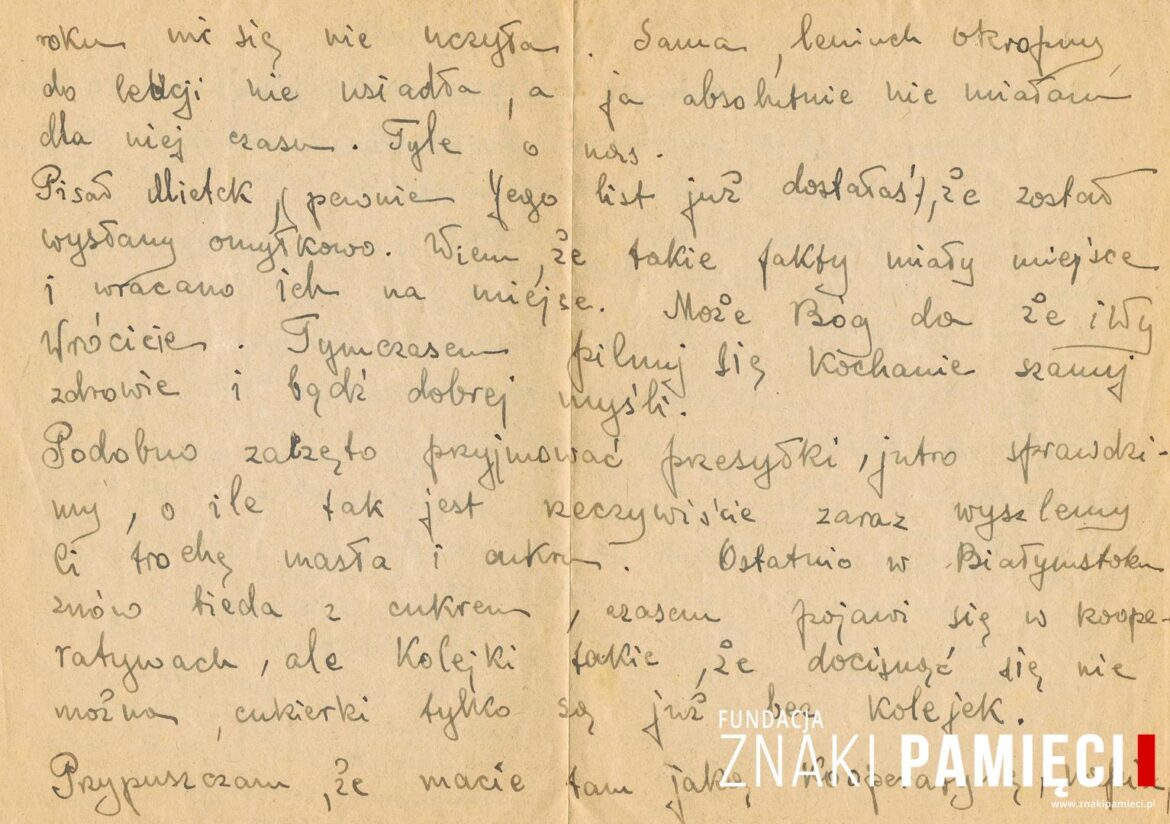 roku mi się nie uczyła. Sama, leniuch okropny,
do lekcji nie usiadła, a ja absolutnie nie miałam
dla niej czasu. Tyle o nas.
Pisał Mietek, (pewnie Jego list już dostałaś), że został
wysłany omyłkowo. Wiem, że takie fakty miały miejsce
i wracano ich na miejsce. Może Bóg da że i Wy
Wrócicie. Tymczasem pilnuj się Kochanie szanuj
zdrowie i bądź dobrej myśli.
Podobno zaczęto przyjmować przesyłki, jutro sprawdzi-
my, o ile tak jest rzeczywiście zaraz wyszlemy
Ci trochę masła i cukru. Ostatnio w Białymstoku
znów bieda z cukrem, czasem pojawi się w koope-
ratywach, ale Kolejki takie, że docisnąć się nie
można, cukierki tylko są już bez Kolejek.
Przypuszczam, że macie tam jaką Kooperatywę,
FUNDACJA
ZNAKI PAMIĘCI
www.znakipamieci.pl